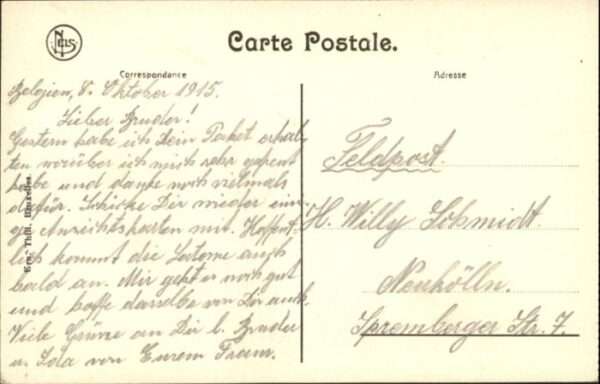 NELS
Carte Postale.
Correspondance
Adresse
Belgien, 8. Oktober 1915.
Lieber Bruder!
Gestern habe ich Dein Paket erhal-
ten worüber ich mich sehr gefreut
habe und danke noch vielmals
dafür. Schicke Dir wieder eini-
ge Ansichtskarten mit. Hoffent-
lich kommt die auch
bald an. Mir geht es noch gut
und hoffe dasselbe von Dir auch.
Viele Grüsse an Dir l. Bruder
u. Lola von Eurem Franz.
Feldpost.
H. Willy Schmidt.
Neukölln.
Spremberger Str. 7.
Ern. Thill, Bruxelles